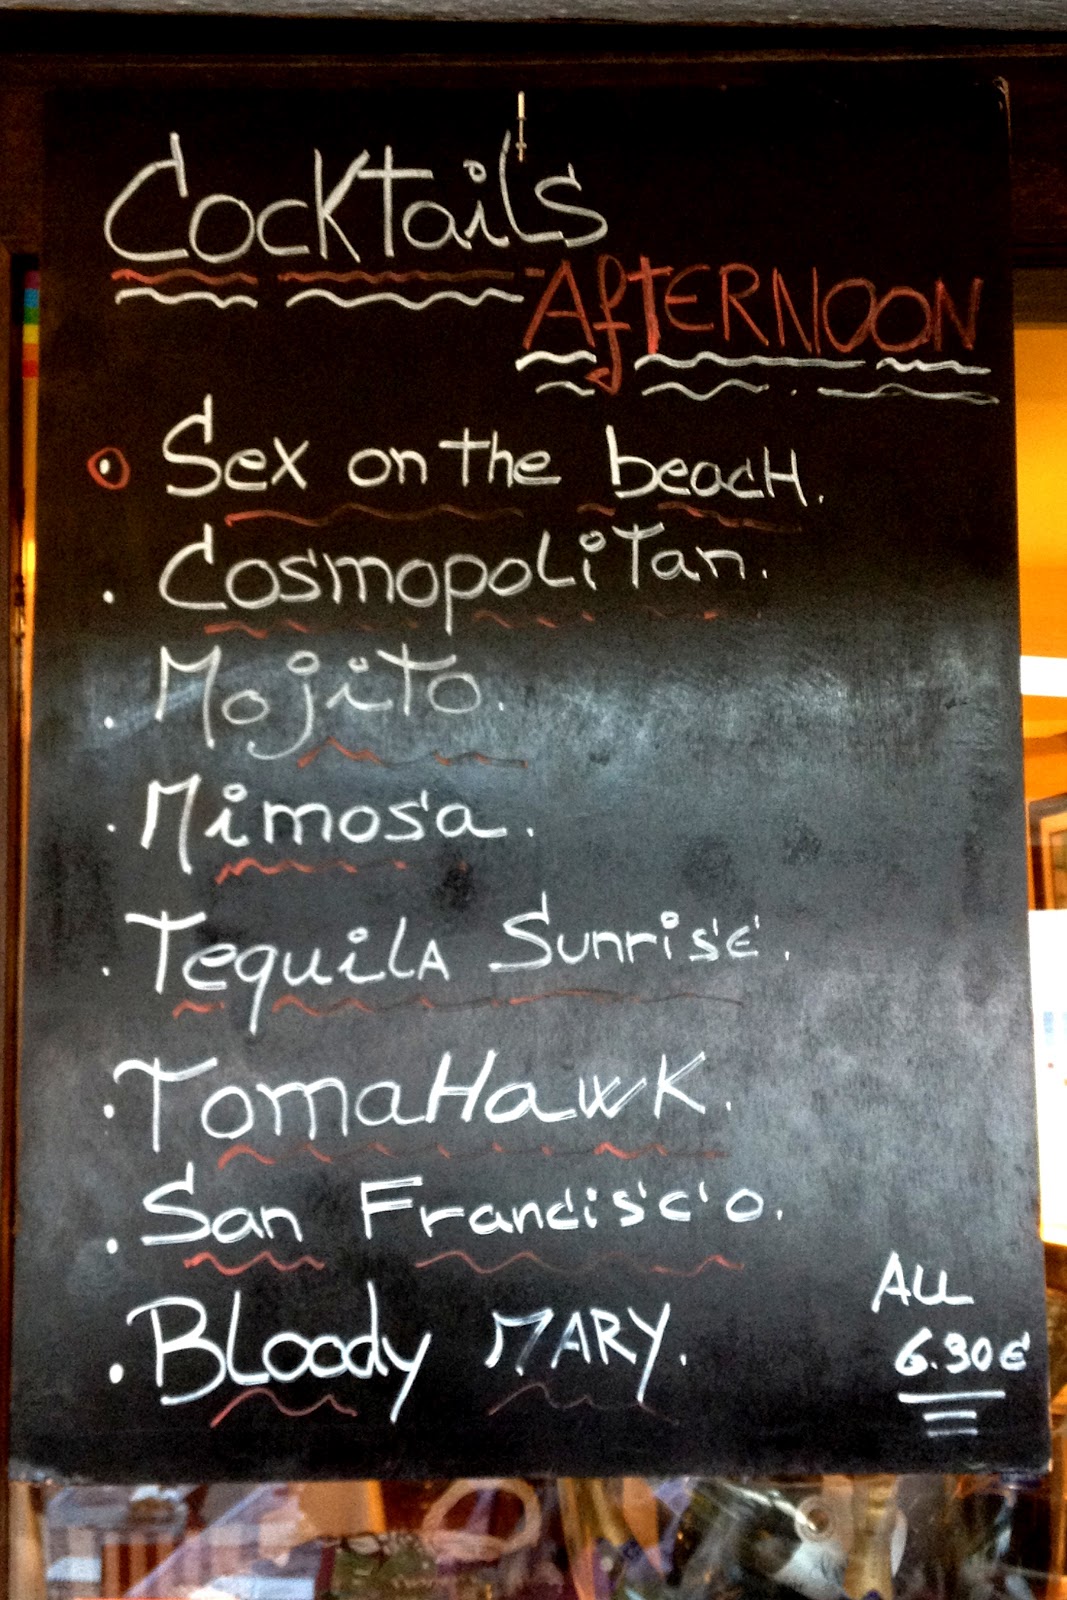 Cocktails
AfTERNOON
Sex on the beach.
Cosmopolitan.
Mojito.
Mimosa.
Tequila Sunrise.
TomaHawk.
San Francisco.
Bloody MARY.
All
6.30€